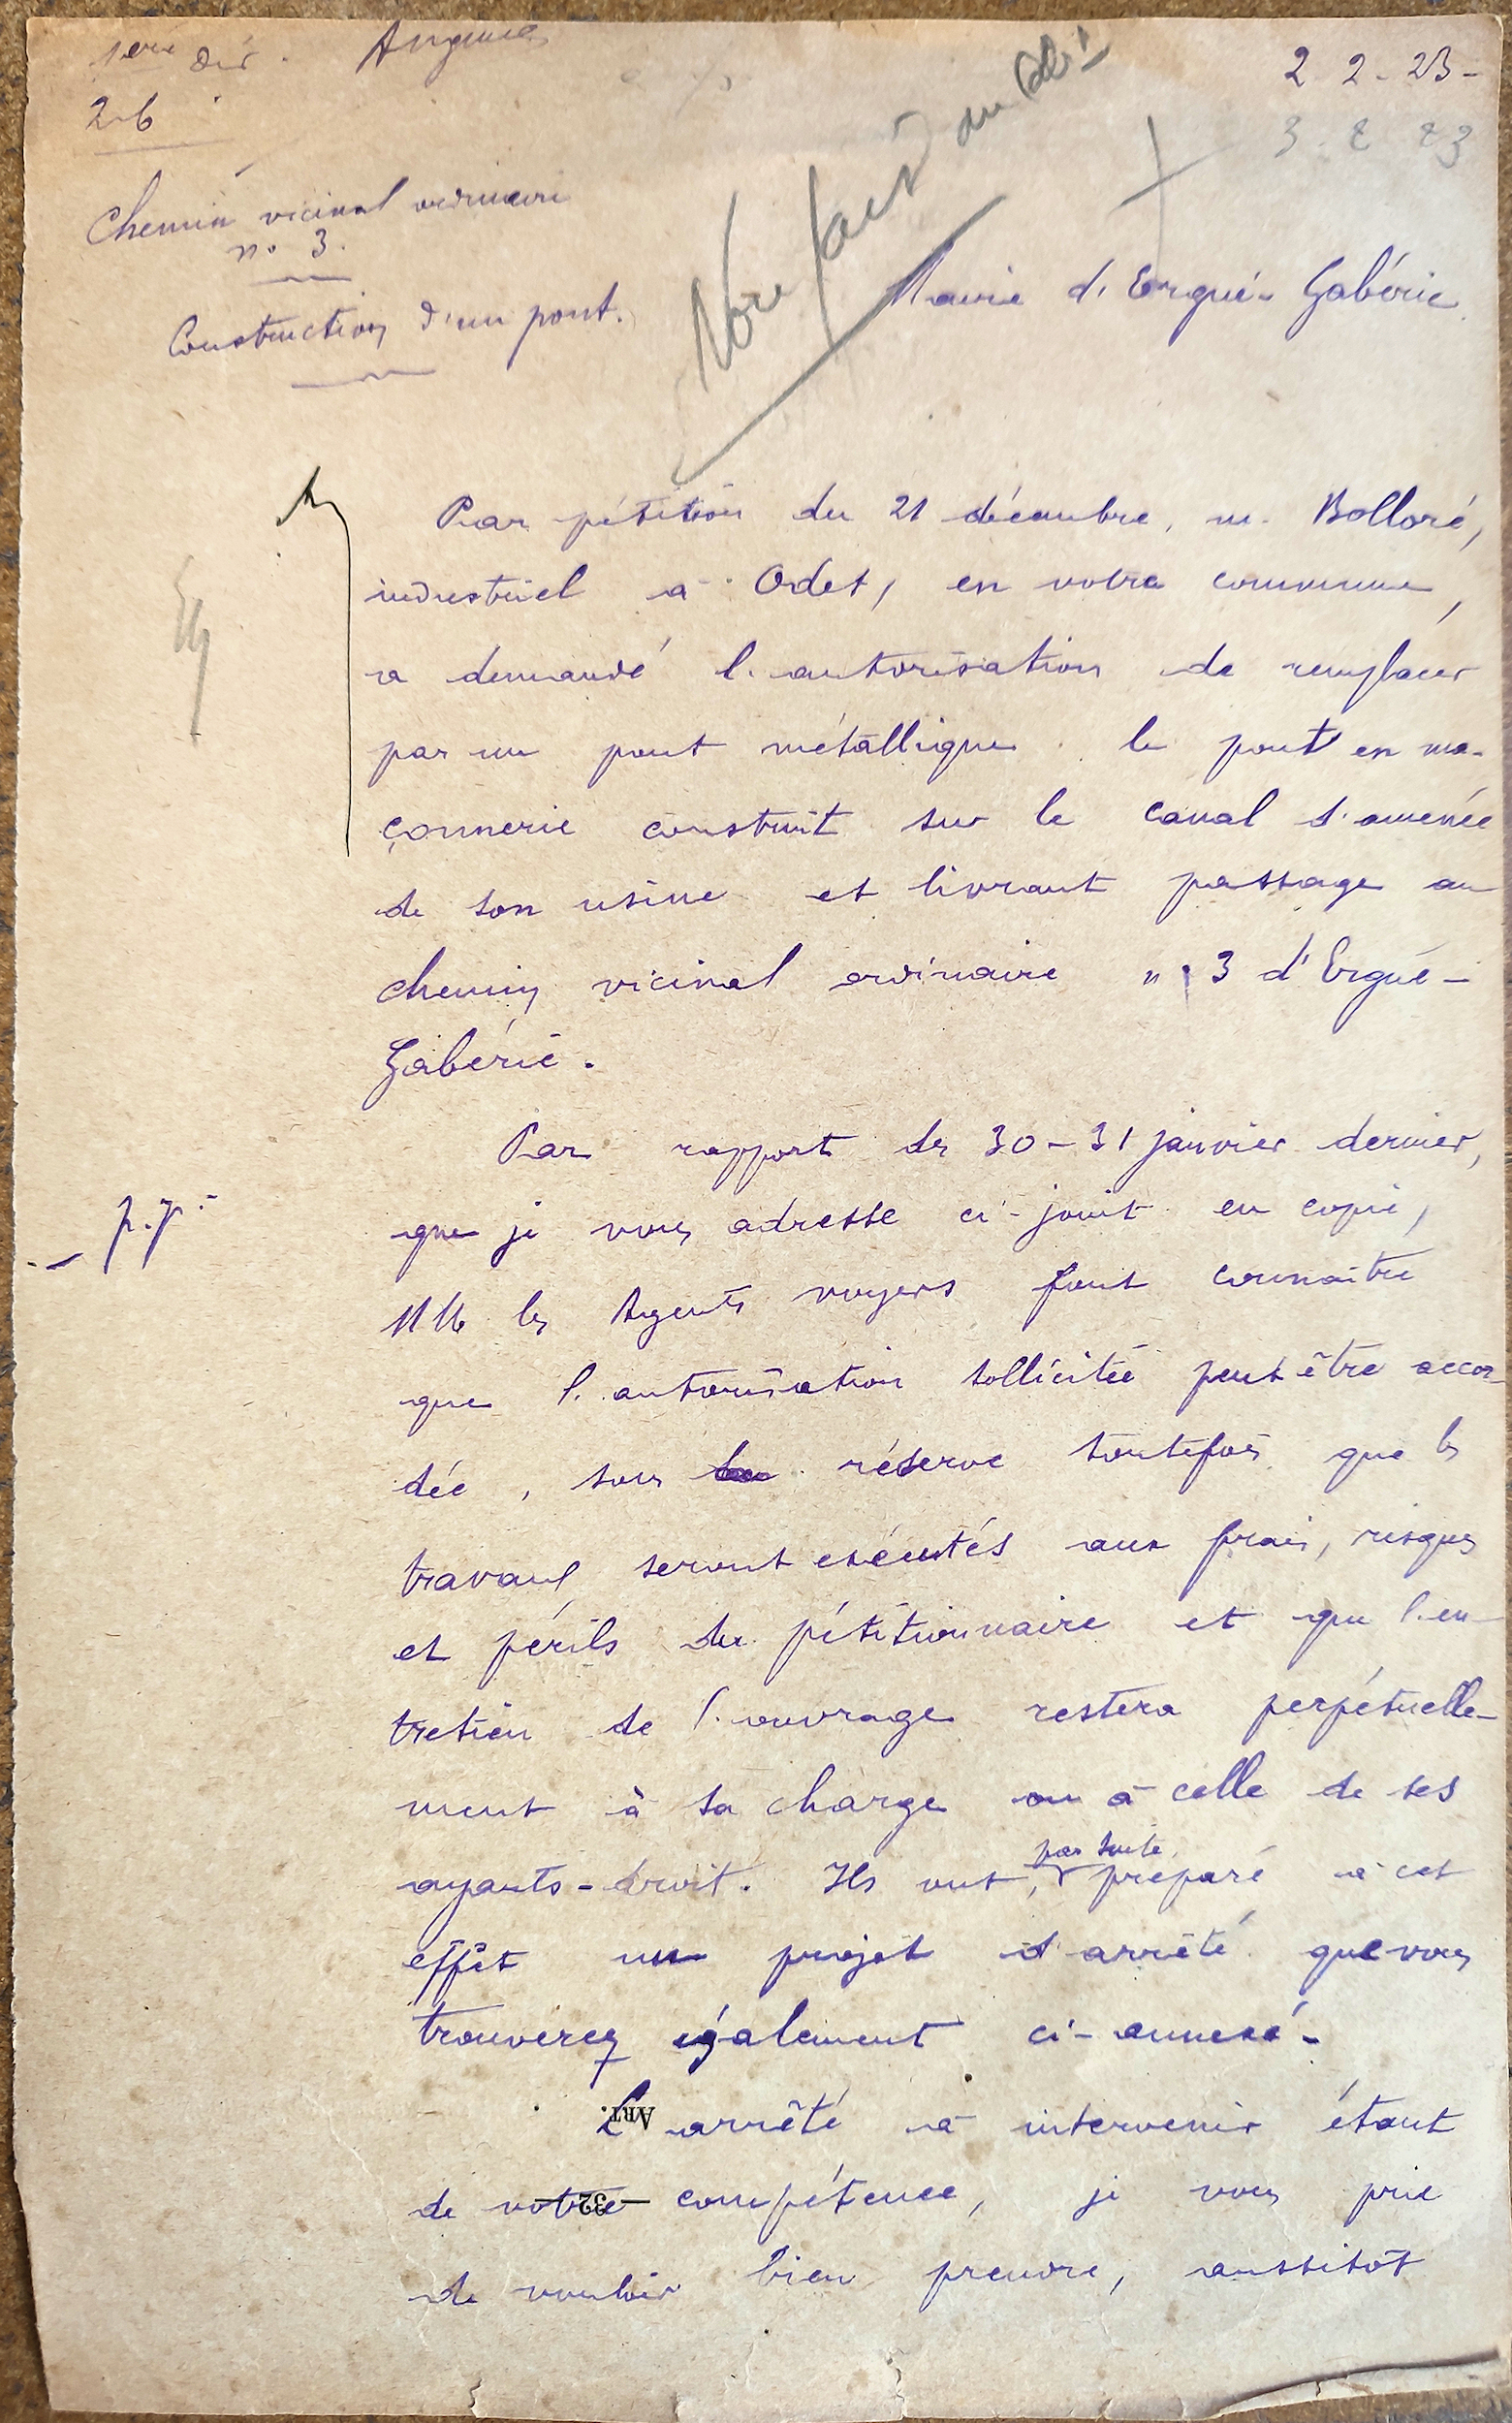 1ère Dir.
2-b
2 2 - 23 -
3 - 2 23
Chemin vicinal ordinaire
n° 3.
Construction d'un pont.
Mairie d'Ergué-Gabéric
Par pétition du 21 décembre, m. Bolloré,
industriel à Odet, en votre commune,
a demandé l'autorisation de remplacer
par un pont métallique le pont en ma-
çonnerie construit sur le canal d'amenée
de son usine et livrant passage au
chemin vicinal ordinaire n° 3 d'Ergué-
Gabéric.
Par rapport des 30-31 janvier dernier,
p.j.
que je vous adresse ci-joint en copie,
MM les Agents voyers font connaître
que l'autorisation sollicitée peut être accor-
dée, sous réserve toutefois que les
travaux seront exécutés aux frais, risques
et périls du pétitionnaire et que l'en-
tretien de l'ouvrage restera perpétuelle-
ment à sa charge ou à celle de ses
ayants-droit. Ils ont, par suite, préparé à cet
effet un projet d'arrêté que vous
trouverez également ci-annexé.
L'arrêté à intervenir étant
ART.
de votre compétence, je vous prie
— 32 —
de vouloir bien prendre, aussitôt